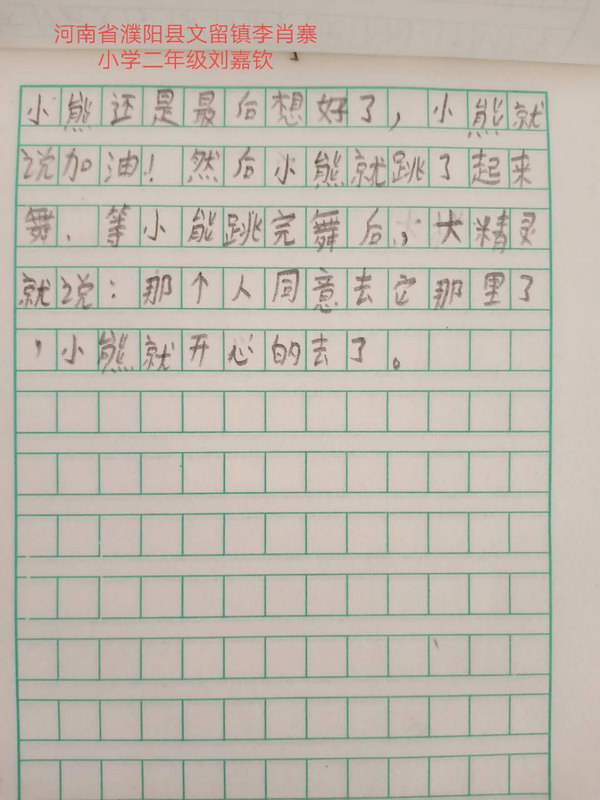 河南省濮阳县文留镇李肖寨
小学二年级刘嘉钦
小熊还是最后想好了，小熊就
说加油！然后小熊就跳了起来
舞、等小能跳完舞后，大精灵
就说：那个人同意去它那里了
，小熊就开心的去了。